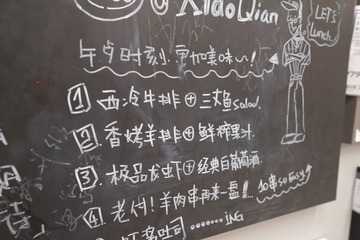 @ XiaoQian
LET'S Lunch
午夕时刻,更加美味~!
1 西冷牛排⊕三文鱼salad.
2 香烤羊排⊕鲜榨果汁.
3. 极品龙虾⊕经典白葡萄酒.
4 老付!羊肉串再来一盘!! 10串so easy!
吐司 ……ing